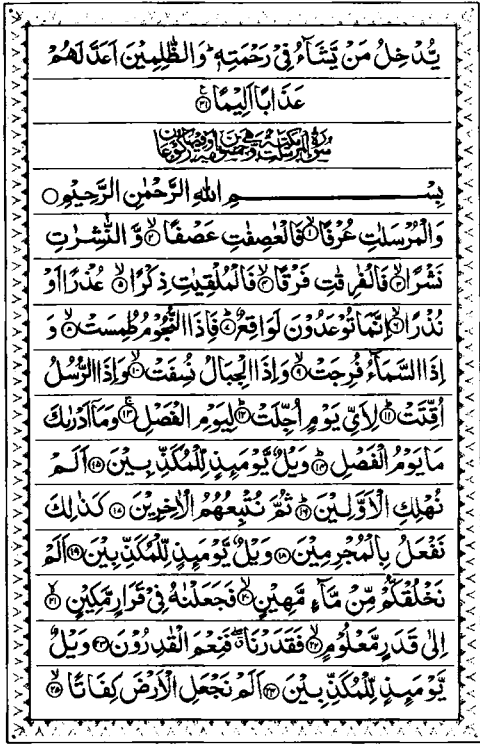 يُّدْخِلُ مَنْ يَّشَآءُ فِيْ رَحْمَتِهٖ ؕ وَالظّٰلِمِيْنَ اَعَدَّ لَهُمْ
عَذَابًا اَلِيْمًا ﴿۳۱﴾
بِسْمِ اللهِ الرَّحْمٰنِ الرَّحِيْمِ ○
وَالْمُرْسَلٰتِ عُرْفًا ۙ﴿۱﴾ فَالْعٰصِفٰتِ عَصْفًا ۙ﴿۲﴾ وَّالنّٰشِرٰتِ
نَشْرًا ۙ﴿۳﴾ فَالْفٰرِقٰتِ فَرْقًا ۙ﴿۴﴾ فَالْمُلْقِيٰتِ ذِكْرًا ۙ﴿۵﴾ عُذْرًا اَوْ
نُذْرًا ۙ﴿۶﴾ اِنَّمَا تُوْعَدُوْنَ لَوَاقِعٌ ؕ﴿۷﴾ فَاِذَا النُّجُوْمُ طُمِسَتْ ۙ﴿۸﴾ وَ
اِذَا السَّمَآءُ فُرِجَتْ ۙ﴿۹﴾ وَاِذَا الْجِبَالُ نُسِفَتْ ۙ﴿۱۰﴾ وَاِذَا الرُّسُلُ
اُقِّتَتْ ؕ﴿۱۱﴾ لِاَيِّ يَوْمٍ اُجِّلَتْ ؕ﴿۱۲﴾ لِيَوْمِ الْفَصْلِ ۚ﴿۱۳﴾ وَمَآ اَدْرٰىكَ
مَا يَوْمُ الْفَصْلِ ؕ﴿۱۴﴾ وَيْلٌ يَّوْمَىِٕذٍ لِّلْمُكَذِّبِيْنَ ﴿۱۵﴾ اَلَمْ
نُهْلِكِ الْاَوَّلِيْنَ ؕ﴿۱۶﴾ ثُمَّ نُتْبِعُهُمُ الْاٰخِرِيْنَ ﴿۱۷﴾ كَذٰلِكَ
نَفْعَلُ بِالْمُجْرِمِيْنَ ﴿۱۸﴾ وَيْلٌ يَّوْمَىِٕذٍ لِّلْمُكَذِّبِيْنَ ﴿۱۹﴾ اَلَمْ
نَخْلُقْكُّمْ مِّنْ مَّآءٍ مَّهِيْنٍ ۙ﴿۲۰﴾ فَجَعَلْنٰهُ فِيْ قَرَارٍ مَّكِيْنٍ ۙ﴿۲۱﴾
اِلٰى قَدَرٍ مَّعْلُوْمٍ ۙ﴿۲۲﴾ فَقَدَرْنَا ۖ فَنِعْمَ الْقٰدِرُوْنَ ﴿۲۳﴾ وَيْلٌ
يَّوْمَىِٕذٍ لِّلْمُكَذِّبِيْنَ ﴿۲۴﴾ اَلَمْ نَجْعَلِ الْاَرْضَ كِفَاتًا ۙ﴿۲۵﴾